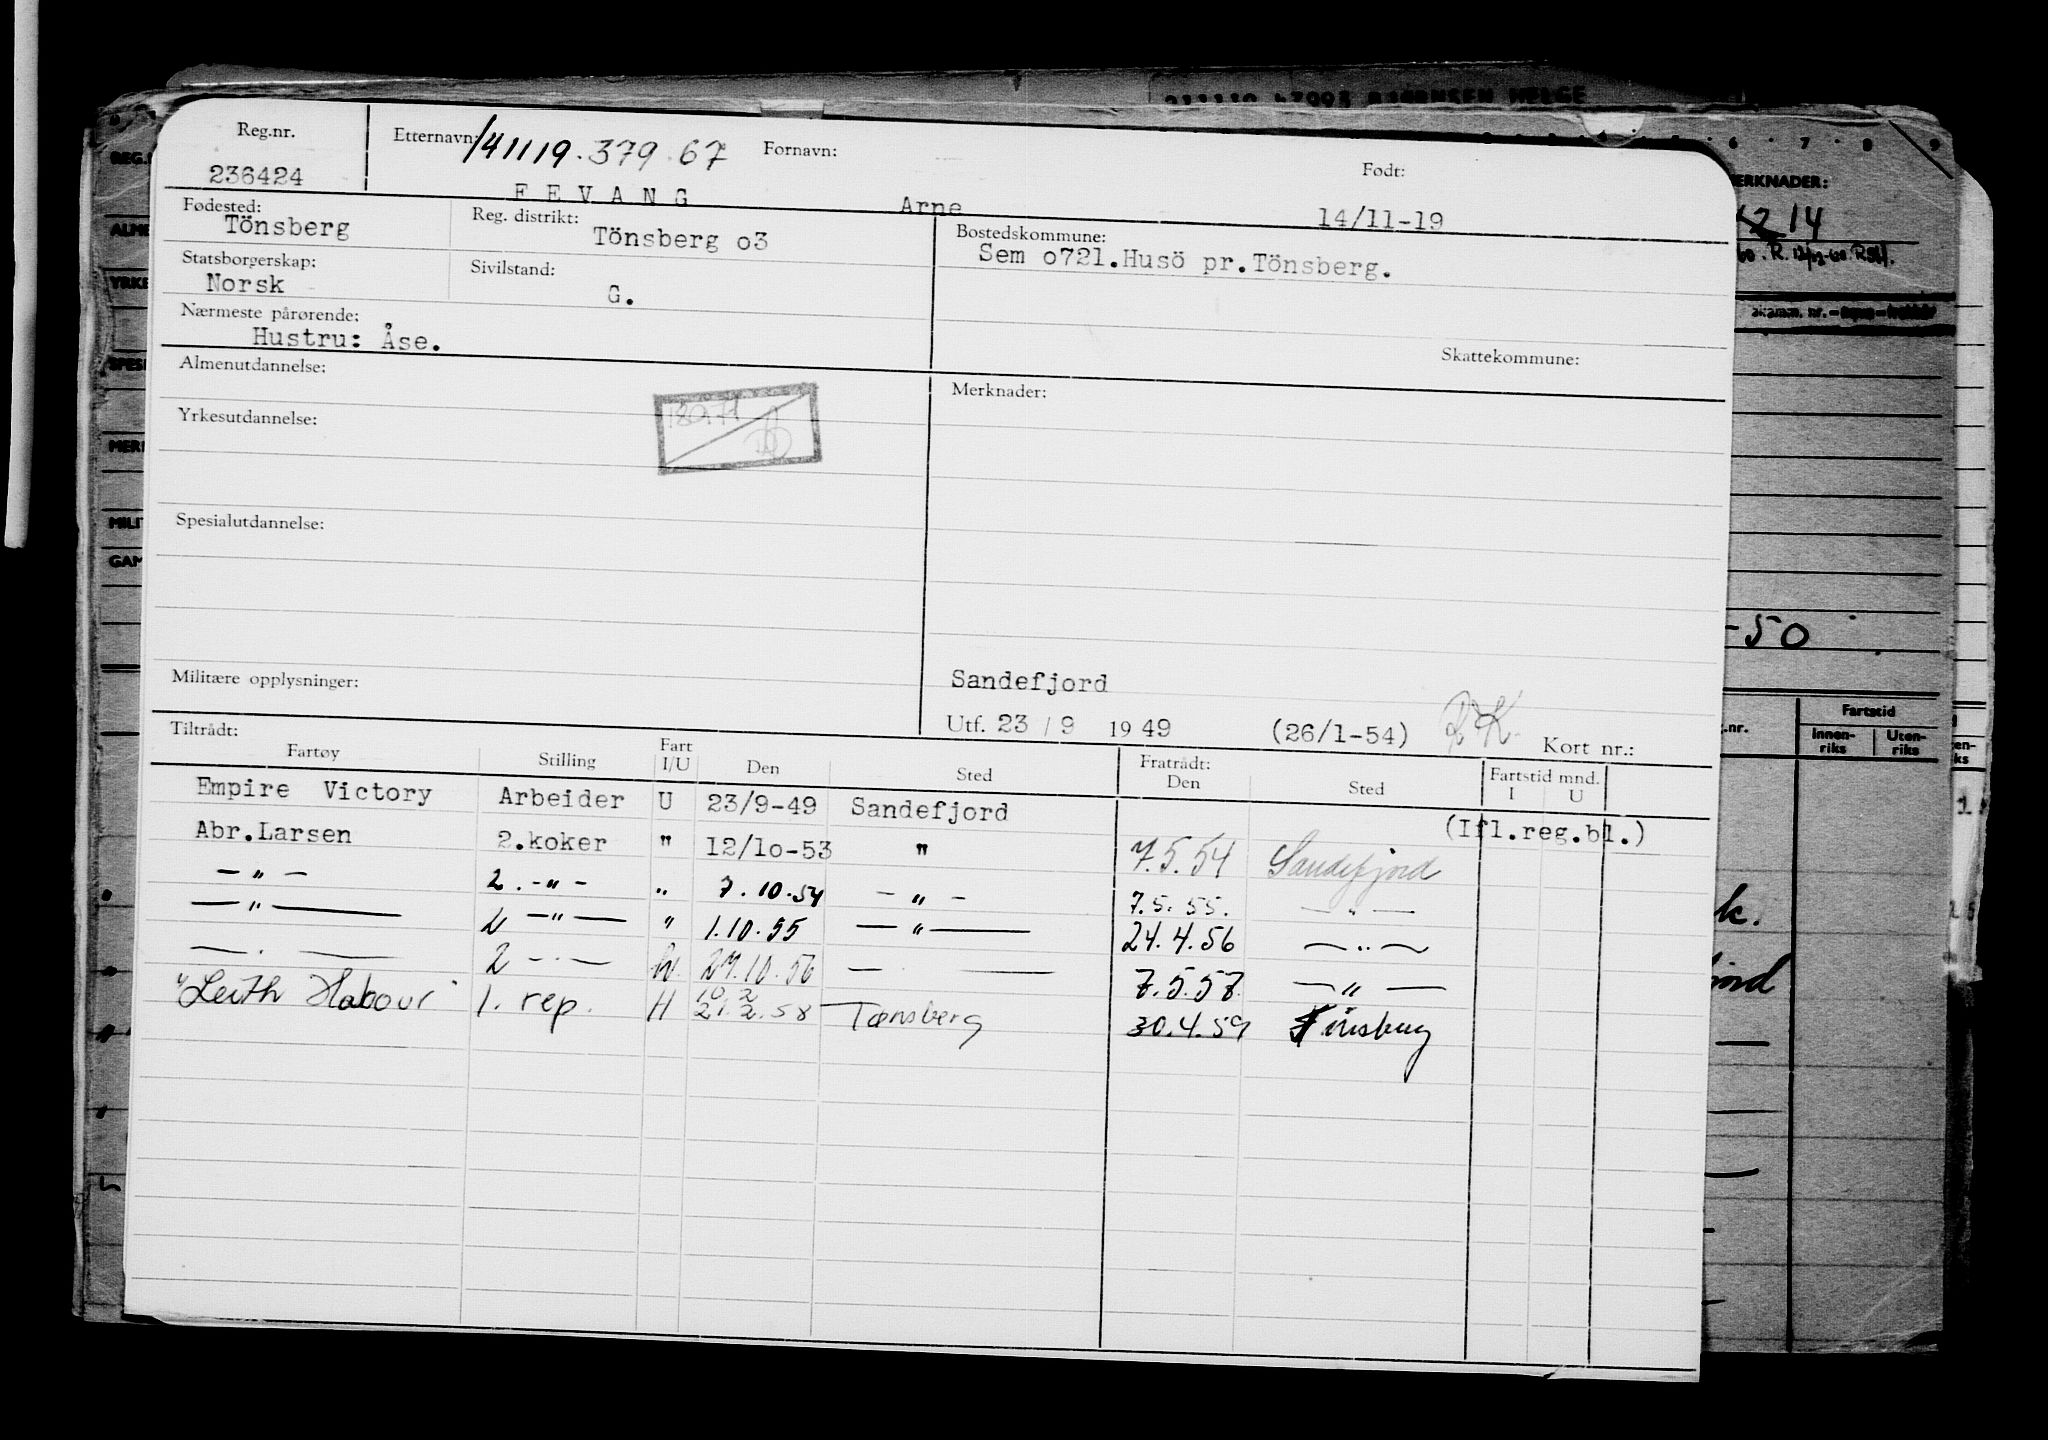 211110 47993 BJØRNSEN HELGE
Reg.nr. Etternavn: 141119.379.67 Fornavn: Født:
236424 EEVANG Arne 14/11-19
Fødested: Tönsberg Reg. distrikt: Tönsberg o3 Bostedskommune: Sem o721.Husö pr.Tönsberg.
Statsborgerskap: Norsk Sivilstand: G.
Nærmeste pårørende: Hustru: Åse.
Skattekommune:
Almenutdannelse: Merknader:
Yrkesutdannelse:
Spesialutdannelse:
Militære opplysninger: Sandefjord
Utf. 23 / 9 1949 (26/1-54) RK. Kort nr.:
Tiltrådt: Fratrådt:
Fartøy Stilling Fart I/U Den Sted Den Sted Fartstid mnd. I U
Empire Victory Arbeider U 23/9-49 Sandefjord (Ifl.reg.bl.)
Abr.Larsen 2.koker " 12/1o-53 " 7.5.54 Sandefjord
— " — 2. -"- " 7.10.54 — " — 7.5.55. — " —
— " — 2 — " — " 1.10.55 — " — 24.4.56 — " —
— . — 2 — . — 27.10.56 — . — 7.5.57. — " —
"Leith Habour" 1. rep. H 21.2.58 Tønsberg 30.4.59 Tønsberg
MERKNADER:
14
-50
Fartstid
Innen-riks Uten-riks